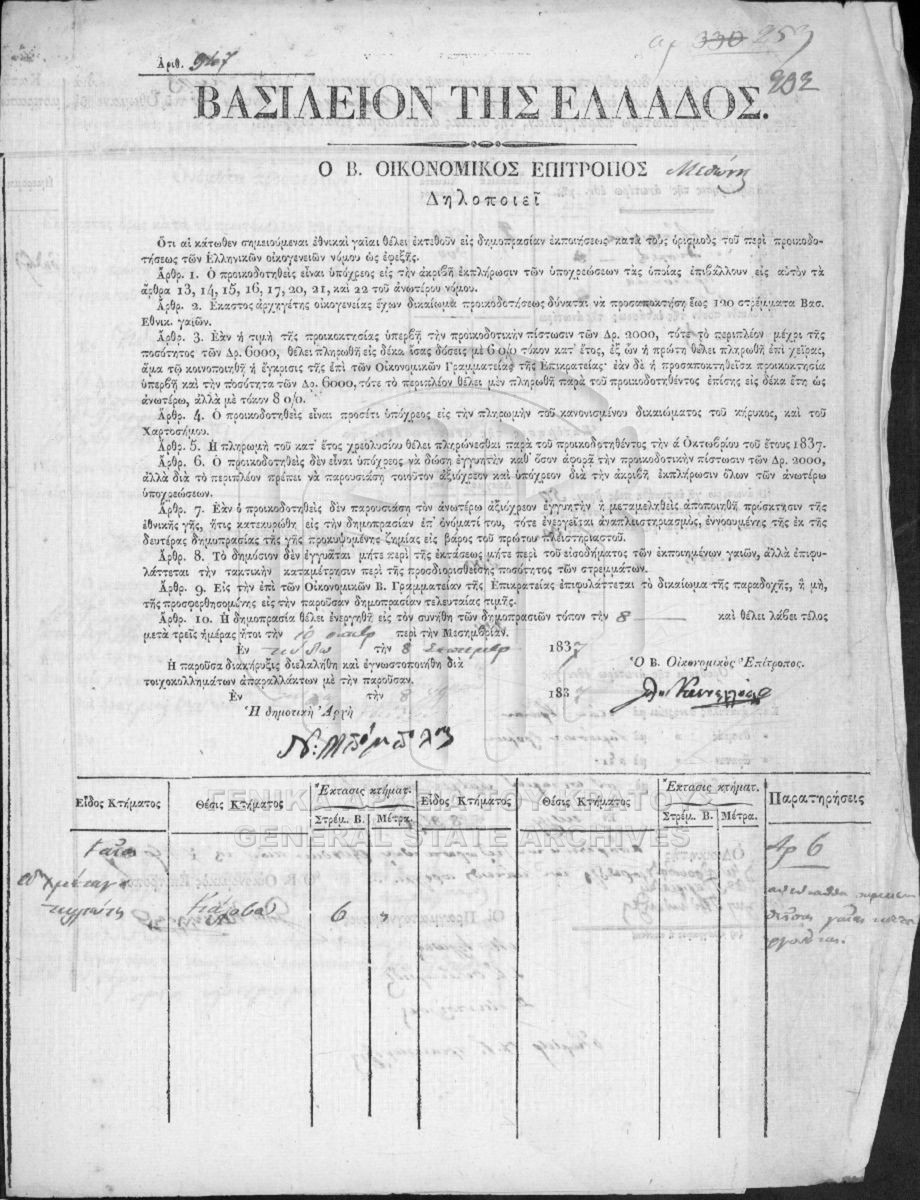 Ἀριθ. 947
330 253
232
ΒΑΣΙΛΕΙΟΝ ΤΗΣ ΕΛΛΑΔΟΣ.
Ο Β. ΟΙΚΟΝΟΜΙΚΟΣ ΕΠΙΤΡΟΠΟΣ Μεθώνης
Δηλοποιεῖ
Ὅτι αἱ κάτωθεν σημειούμεναι ἐθνικαὶ γαῖαι θέλει ἐκτεθοῦν εἰς δημοπρασίαν ἐκποιήσεως κατὰ τοὺς ὁρισμοὺς τοῦ περὶ προικοδο-
τήσεως τῶν Ἑλληνικῶν οἰκογενειῶν νόμου ὡς ἐφεξῆς.
Ἄρθρ. 1. Ὁ προικοδοτηθεὶς εἶναι ὑπόχρεος εἰς τὴν ἀκριβῆ ἐκπλήρωσιν τῶν ὑποχρεώσεων τὰς ὁποίας ἐπιβάλλουν εἰς αὐτὸν τὰ
ἄρθρα 13, 14, 15, 16, 17, 20, 21, καὶ 22 τοῦ ἀνωτέρω νόμου.
Ἄρθρ. 2. Ἕκαστος ἀρχηγέτης οἰκογενείας ἔχων δικαίωμα προικοδοτήσεως δύναται νὰ προσαποκτήσῃ ἕως 120 στρέμματα Βασ.
Ἐθνικ. γαιῶν.
Ἄρθρ. 3. Ἐὰν ἡ τιμὴ τῆς προικοκτησίας ὑπερβῇ τὴν προικοδοτικὴν πίστωσιν τῶν Δρ. 2000, τότε τὸ περιπλέον μέχρι τῆς
ποσότητος τῶν Δρ. 6000, θέλει πληρωθῆ εἰς δέκα ἴσας δόσεις μὲ 6 0/0 τόκον κατ' ἔτος, ἐξ ὧν ἡ πρώτη θέλει πληρωθῆ ἐπὶ χεῖρας,
ἅμα τῷ κοινοποιηθῇ ἡ ἔγκρισις τῆς ἐπὶ τῶν Οἰκονομικῶν Γραμματείας τῆς Ἐπικρατείας· ἐὰν δὲ ἡ προσαποκτηθεῖσα προικοκτησία
ὑπερβῇ καὶ τὴν ποσότητα τῶν Δρ. 6000, τότε τὸ περιπλέον θέλει μὲν πληρωθῆ παρὰ τοῦ προικοδοτηθέντος ἐπίσης εἰς δέκα ἔτη ὡς
ἀνωτέρω, ἀλλὰ μὲ τόκον 8 0/0.
Ἄρθρ. 4. Ὁ προικοδοτηθεὶς εἶναι προσέτι ὑπόχρεος εἰς τὴν πληρωμὴν τοῦ κανονισμένου δικαιώματος τοῦ κήρυκος, καὶ τοῦ
Χαρτοσήμου.
Ἄρθρ. 5. Ἡ πληρωμὴ τοῦ κατ' ἔτος χρεολυσίου θέλει πληρώνεσθαι παρὰ τοῦ προικοδοτηθέντος τὴν ά Ὀκτωβρίου τοῦ ἔτους 1837.
Ἄρθρ. 6. Ὁ προικοδοτηθεὶς δὲν εἶναι ὑπόχρεος νὰ δώσῃ ἐγγυητὴν καθ' ὅσον ἀφορᾷ τὴν προικοδοτικὴν πίστωσιν τῶν Δρ. 2000,
ἀλλὰ διὰ τὸ περιπλέον πρέπει νὰ παρουσιάσῃ τοιοῦτον ἀξιόχρεον καὶ ὑπόχρεον διὰ τὴν ἀκριβῆ ἐκπλήρωσιν ὅλων τῶν ἀνωτέρω
ὑποχρεώσεων.
Ἄρθρ. 7. Ἐὰν ὁ προικοδοτηθεὶς δὲν παρουσιάσῃ τὸν ἀνωτέρω ἀξιόχρεον ἐγγυητὴν ἢ μεταμεληθεὶς ἀποποιηθῇ πρόσκτησιν τῆς
ἐθνικῆς γῆς, ἥτις κατεκυρώθη εἰς τὴν δημοπρασίαν ἐπ' ὀνόματί του, τότε ἐνεργεῖται ἀναπλειστηριασμὸς, ἐννοουμένης τῆς ἐκ τῆς
δευτέρας δημοπρασίας τῆς γῆς προκυψομένης ζημίας εἰς βάρος τοῦ πρώτου πλειστηριαστοῦ.
Ἄρθρ. 8. Τὸ δημόσιον δὲν ἐγγυᾶται μήτε περὶ τῆς ἐκτάσεως μήτε περὶ τοῦ εἰσοδήματος τῶν ἐκποιημένων γαιῶν, ἀλλὰ ἐπιφυ-
λάττεται τὴν τακτικὴν καταμέτρησιν περὶ τῆς προσδιορισθείσης ποσότητος τῶν στρεμμάτων.
Ἄρθρ. 9. Εἰς τὴν ἐπὶ τῶν Οἰκονομικῶν Β. Γραμματείαν τῆς Ἐπικρατείας ἐπιφυλάττεται τὸ δικαίωμα τῆς παραδοχῆς, ἢ μὴ,
τῆς προσφερθησομένης εἰς τὴν παροῦσαν δημοπρασίαν τελευταίας τιμῆς.
Ἄρθρ. 10. Ἡ δημοπρασία θέλει ἐνεργηθῆ εἰς τὸν συνήθη τῶν δημοπρασιῶν τόπον τὴν 8 καὶ θέλει λάβει τέλος
μετὰ τρεῖς ἡμέρας ἤτοι τὴν 10 περὶ τὴν Μεσημβρίαν.
Ἐν τὴν 8 1837
Ἡ παροῦσα διακήρυξις διελαλήθη καὶ ἐγνωστοποιήθη διὰ
τοιχοκολλημάτων ἀπαραλλάκτων μὲ τὴν παροῦσαν.
Ὁ Β. Οἰκονομικὸς Ἐπίτροπος.
Ἐν τὴν 8 1837
Ἡ δημοτικὴ Ἀρχὴ
Εἶδος Κτήματος Θέσις Κτήματος Ἔκτασις κτήματ. Εἶδος Κτήματος Θέσις Κτήματος Ἔκτασις κτήματ. Παρατηρήσεις
Στρέμ. Β. Μέτρα. Στρέμ. Β. Μέτρα.
ΓΕΝΙΚΑ ΑΡΧΕΙΑ ΤΟΥ ΚΡΑΤΟΥΣ
GENERAL STATE ARCHIVES
Γαῖαι
Αρ 6
6